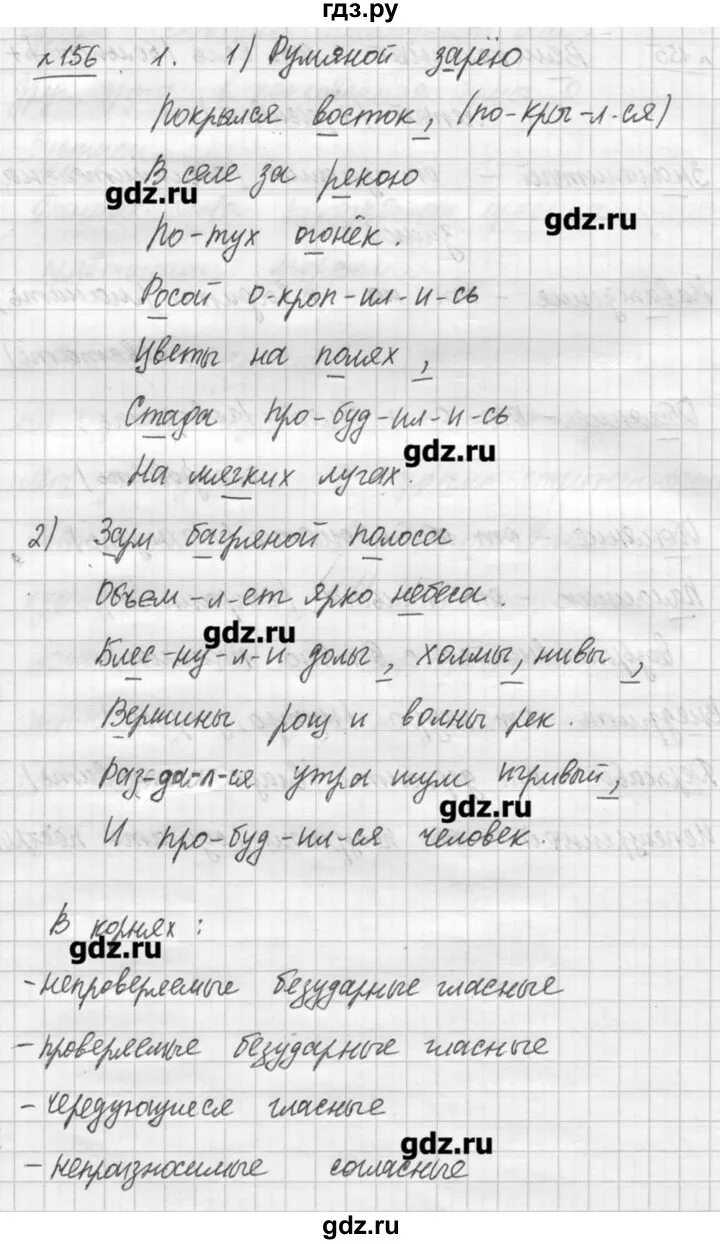 гдз.ру
№156 1. 1) Румяной зарёю
Покрылся восток, (по-кры-л-ся)
В селе за рекою
gdz.ru
gdz.ru
По-тух огонёк.
Росой о-кроп-ил-и-сь
Цветы на полях,
Стада про-буд-ил-и-сь
gdz.ru
На мягких лугах.
2) Заум багряной полоса
Объем-л-ет ярко небеса.
gdz.ru
Блес-ну-л-и долы, холмы, нивы,
Вершины рощ и волны рек.
Раз-да-л-ся утра шум игривый,
gdz.ru
И про-буд-ил-ся человек.
В корнях:
gdz.ru
-непроверяемые безударные гласные
-проверяемые безударные гласные
-чередующиеся гласные
gdz.ru
-непроизносимые согласные
gdz.ru